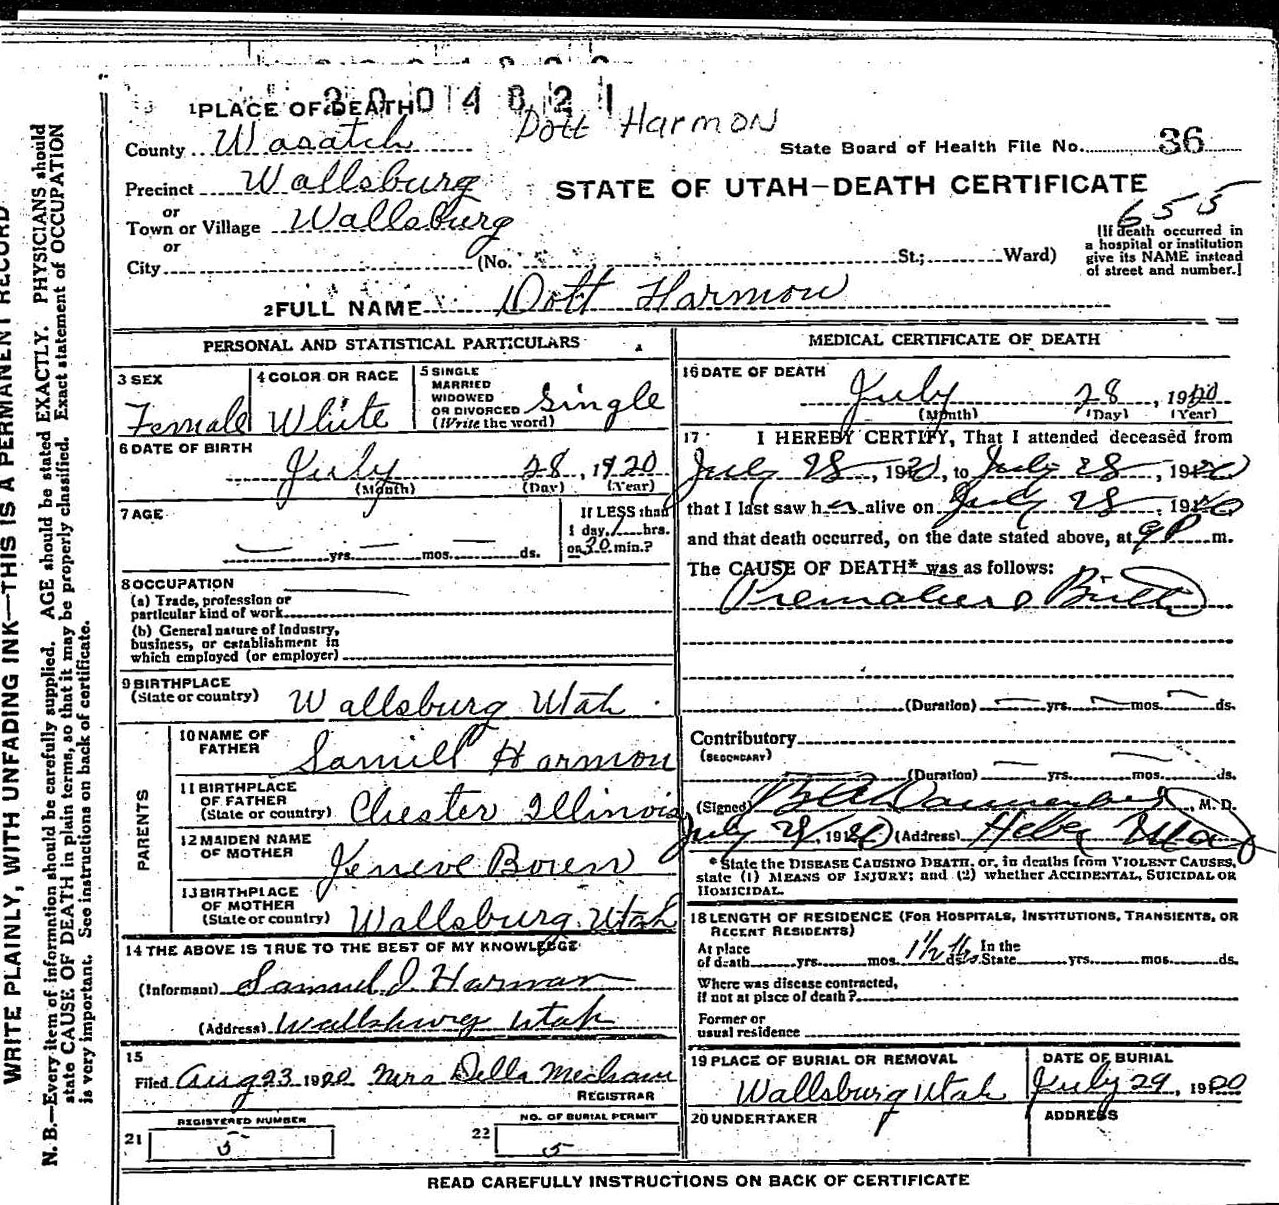 2004821
1 PLACE OF DEATH
Dott Harmon
County Wasatch
State Board of Health File No. 36
Precinct Wallsburg
STATE OF UTAH—DEATH CERTIFICATE
655
or
Town or Village Wallsburg
or
City (No. St.; Ward)
[If death occurred in
a hospital or institution
give its NAME instead
of street and number.]
2 FULL NAME Dott Harmon
PERSONAL AND STATISTICAL PARTICULARS
3 SEX
Female
4 COLOR OR RACE
White
5 SINGLE
MARRIED
WIDOWED
OR DIVORCED
(Write the word)
Single
6 DATE OF BIRTH
July 28, 1920
(Month) (Day) (Year)
7 AGE
yrs. mos. ds.
If LESS than
1 day, 1 hrs.
or 30 min.?
8 OCCUPATION
(a) Trade, profession or
particular kind of work
(b) General nature of industry,
business, or establishment in
which employed (or employer)
9 BIRTHPLACE
(State or country) Wallsburg Utah
PARENTS
10 NAME OF
FATHER Samuel Harmon
11 BIRTHPLACE
OF FATHER
(State or country) Chester Illinois
12 MAIDEN NAME
OF MOTHER Jeneve Boren
13 BIRTHPLACE
OF MOTHER
(State or country) Wallsburg Utah
14 THE ABOVE IS TRUE TO THE BEST OF MY KNOWLEDGE
(Informant) Samuel J. Harmon
(Address) Wallsburg Utah
15
Filed Aug 23 1920 Mrs Della Mecham
REGISTRAR
21 REGISTERED NUMBER
5
22 NO. OF BURIAL PERMIT
5
MEDICAL CERTIFICATE OF DEATH
16 DATE OF DEATH
July 28, 1920
(Month) (Day) (Year)
17 I HEREBY CERTIFY, That I attended deceased from
July 28, 1920, to July 28, 1920
that I last saw her alive on July 28, 1920
and that death occurred, on the date stated above, at 9P m.
The CAUSE OF DEATH* was as follows:
Premature Birth
(Duration) yrs. mos. ds.
Contributory
(SECONDARY)
(Duration) yrs. mos. ds.
(Signed) M. D.
July 29, 1920 (Address) Heber Utah
* State the DISEASE CAUSING DEATH, or, in deaths from VIOLENT CAUSES,
state (1) MEANS OF INJURY; and (2) whether ACCIDENTAL, SUICIDAL OR
HOMICIDAL.
18 LENGTH OF RESIDENCE (FOR HOSPITALS, INSTITUTIONS, TRANSIENTS, OR
RECENT RESIDENTS)
At place
of death yrs. mos. 1½ hrs ds. In the
State yrs. mos. ds.
Where was disease contracted,
if not at place of death?
Former or
usual residence
19 PLACE OF BURIAL OR REMOVAL
Wallsburg Utah
DATE OF BURIAL
July 29, 1920
20 UNDERTAKER
ADDRESS
READ CAREFULLY INSTRUCTIONS ON BACK OF CERTIFICATE
WRITE PLAINLY, WITH UNFADING INK—THIS IS A PERMANENT RECORD
N. B.—Every item of information should be carefully supplied. AGE should be stated EXACTLY. PHYSICIANS should
state CAUSE OF DEATH in plain terms, so that it may be properly classified. Exact statement of OCCUPATION
is very important. See instructions on back of certificate.